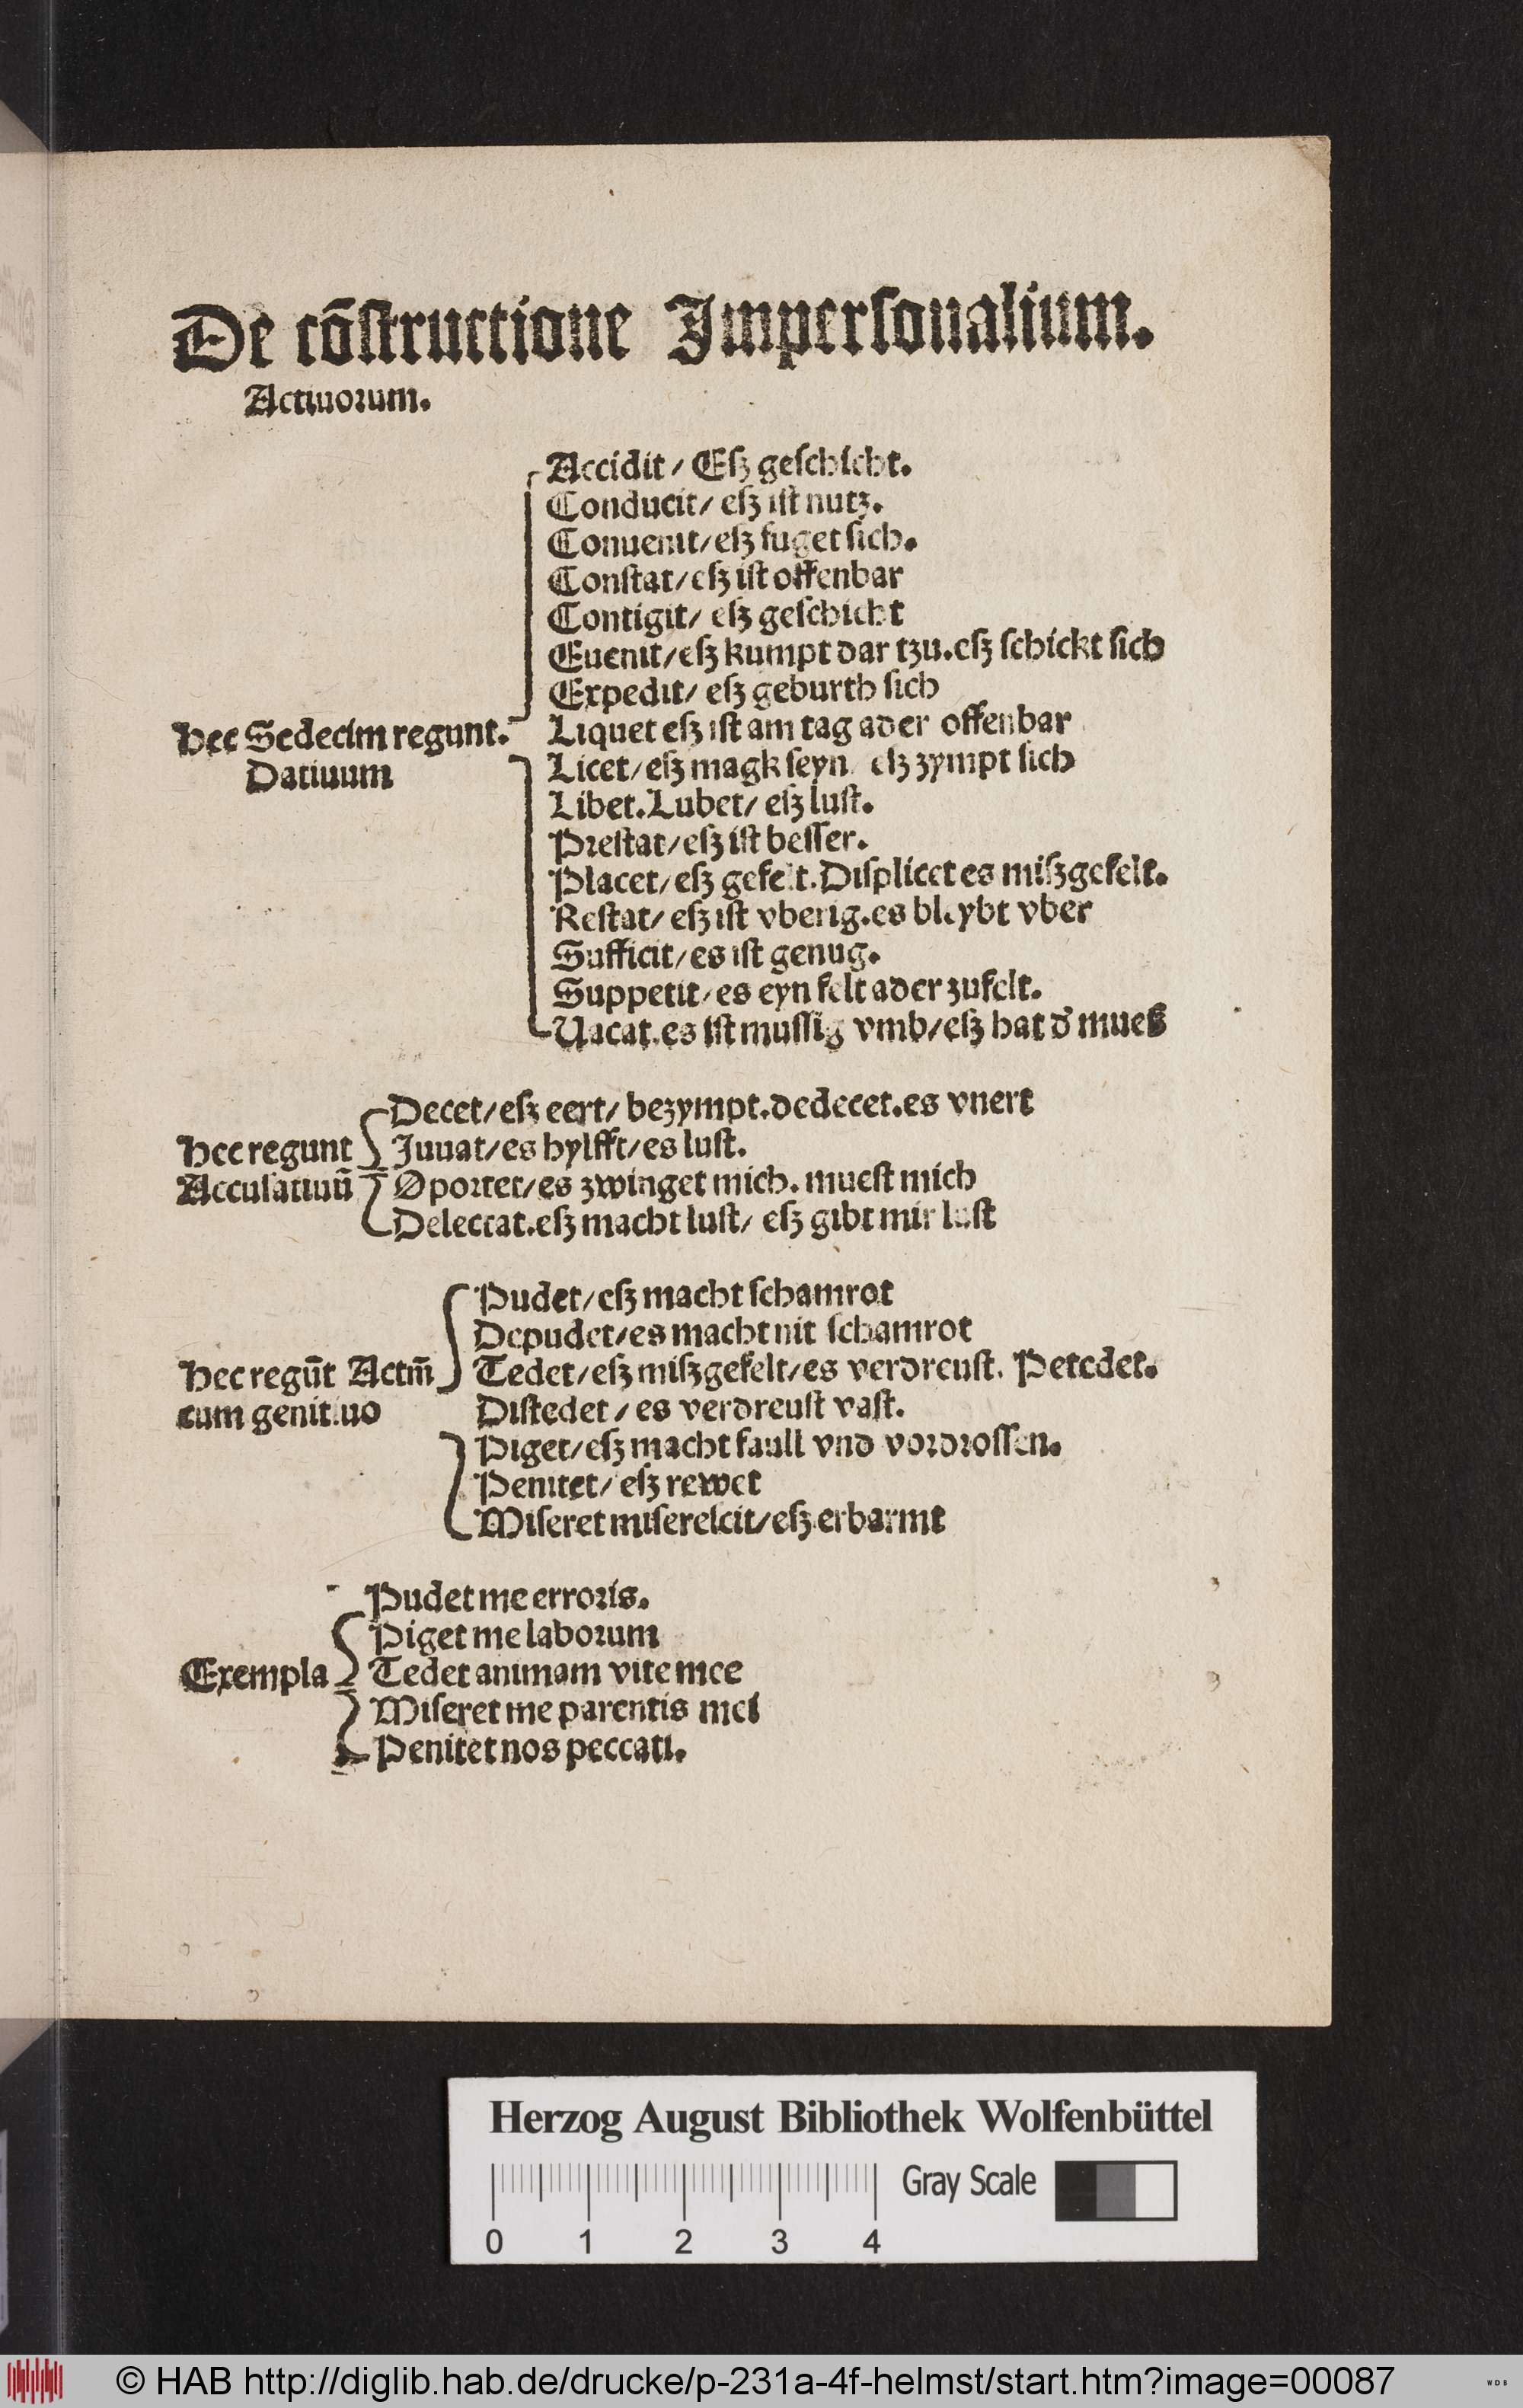 De cōſtructione Imperſonalium.
Actiuorum.
Accidit/ Eſz geſchicht.
Conducit/ eſz iſt nutz.
Conuenit/ eſz fuget ſich.
Conſtat/ eſz iſt offenbar
Contigit/ eſz geſchicht
Euenit/ eſz kumpt dar tzu. eſz ſchickt ſich
Expedit/ eſz geburth ſich
Hec Sedecim regunt. Liquet eſz iſt am tag ader offenbar
Datiuum Licet/ eſz magk ſeyn eſz zympt ſich
Libet. Lubet/ eſz luſt.
Preſtat/ eſz iſt beſſer.
Placet/ eſz gefelt. Diſplicet es miſzgefelt.
Reſtat/ eſz iſt vberig. es bleybt vber
Sufficit/ es iſt genug.
Suppetit/ es eyn felt ader zufelt.
Uacat. es iſt muſſig vmb/ eſz hat d' mueß
Decet/ eſz eert/ bezympt. dedecet. es vnert
Hec regunt Juuat/ es hylfft/ es luſt.
Accuſatiuū Oportet/ es zwinget mich. mueſt mich
Delectat. eſz macht luſt/ eſz gibt mir luſt
Pudet/ eſz macht ſchamrot
Depudet/ es macht nit ſchamrot
Hec regūt Actm̄ Tedet/ eſz miſzgefelt/ es verdreuſt. Petedet.
cum genitiuo Diſtedet/ es verdreuſt vaſt.
Piget/ eſz macht faull vnd vordroſſen.
Penitet/ eſz rewet
Miſeret miſereſcit/ eſz erbarmt
Pudet me erroris.
Piget me laborum
Exempla Tedet animam vite mee
Miſeret me parentis mei
Penitet nos peccati.
Herzog August Bibliothek Wolfenbüttel
Gray Scale
0 1 2 3 4
© HAB http://diglib.hab.de/drucke/p-231a-4f-helmst/start.htm?image=00087
WDB